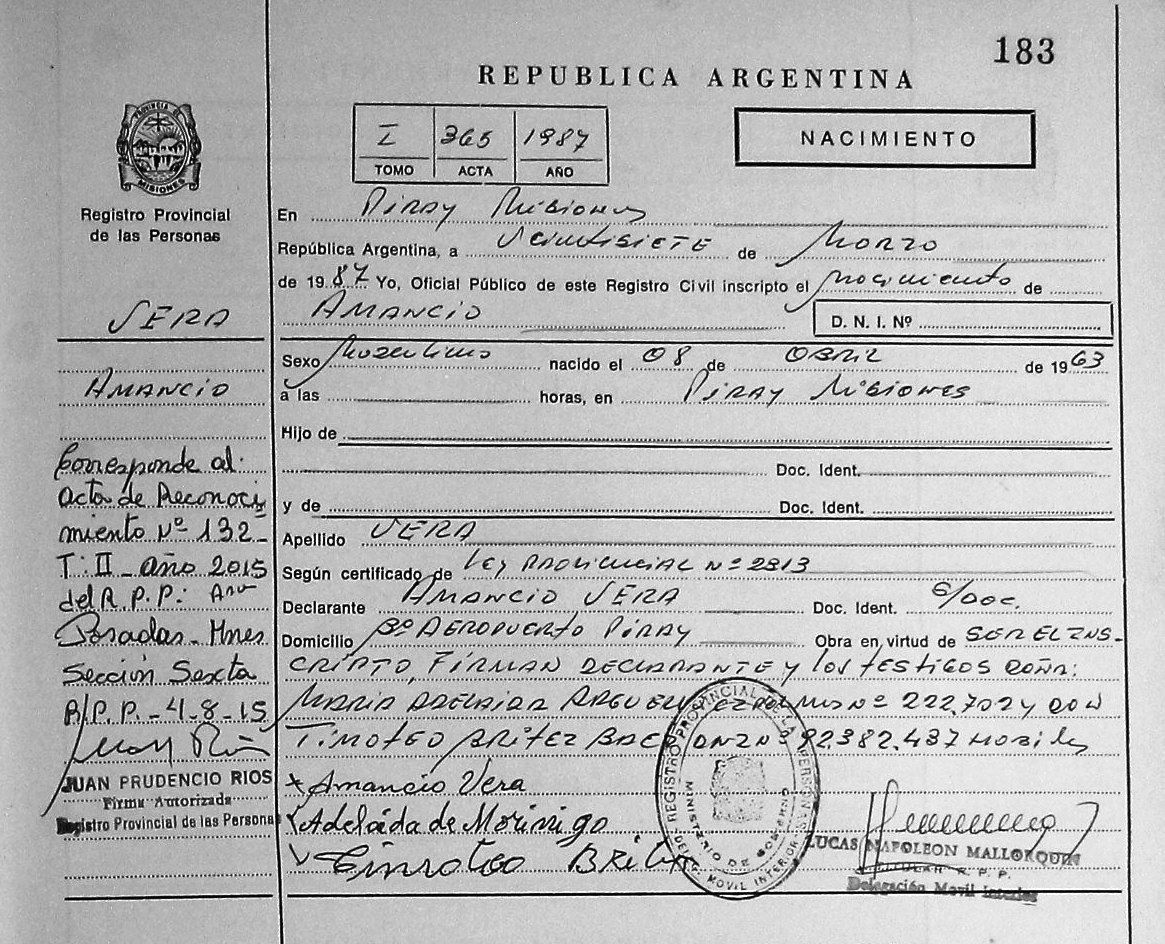 183
REPUBLICA ARGENTINA
I 365 1987
TOMO ACTA AÑO
NACIMIENTO
PROVINCIA DE
MISIONES
Registro Provincial
de las Personas
VERA
AMANCIO
Corresponde al
acta de Reconoci
miento Nº 132_
T: II _ año 2015
del R.P.P:
Posadas - Mnes
Sección Sexta
R/P.P. - 4-8-15
JUAN PRUDENCIO RIOS
Firma Autorizada
Registro Provincial de las Persona
En PIRAY MISIONES
República Argentina, a VEINTISIETE de MARZO
de 1987 Yo, Oficial Público de este Registro Civil inscripto el nacimiento de
AMANCIO D. N. I. Nº
Sexo Masculino nacido el 08 de ABRIL de 1963
à las horas, en PIRAY MISIONES
Hijo de
Doc. Ident.
y de Doc. Ident.
Apellido VERA
Según certificado de LEY PROVINCIAL Nº 2813
Declarante AMANCIO VERA Doc. Ident. S/DOC.
Domicilio Bº AEROPUERTO PIRAY Obra en virtud de SER EL INS-
CRIPTO, FIRMAN DECLARANTE y los TESTIGOS DOÑA:
MARIA ADELAIDA Nº 222.702 y DON
TIMOTEO BRITEZ 92.382.437
x Amancio Vera
Adelaida de Morinigo
Timoteo BRITEZ
REGISTRO PROVINCIAL DE LAS PERSONAS
MINISTERIO DE GOBIERNO
DELEG. MOVIL INTERIOR
LUCAS NAPOLEON MALLORQUIN
TITULAR R. P. P.
Delegación Movil Interior